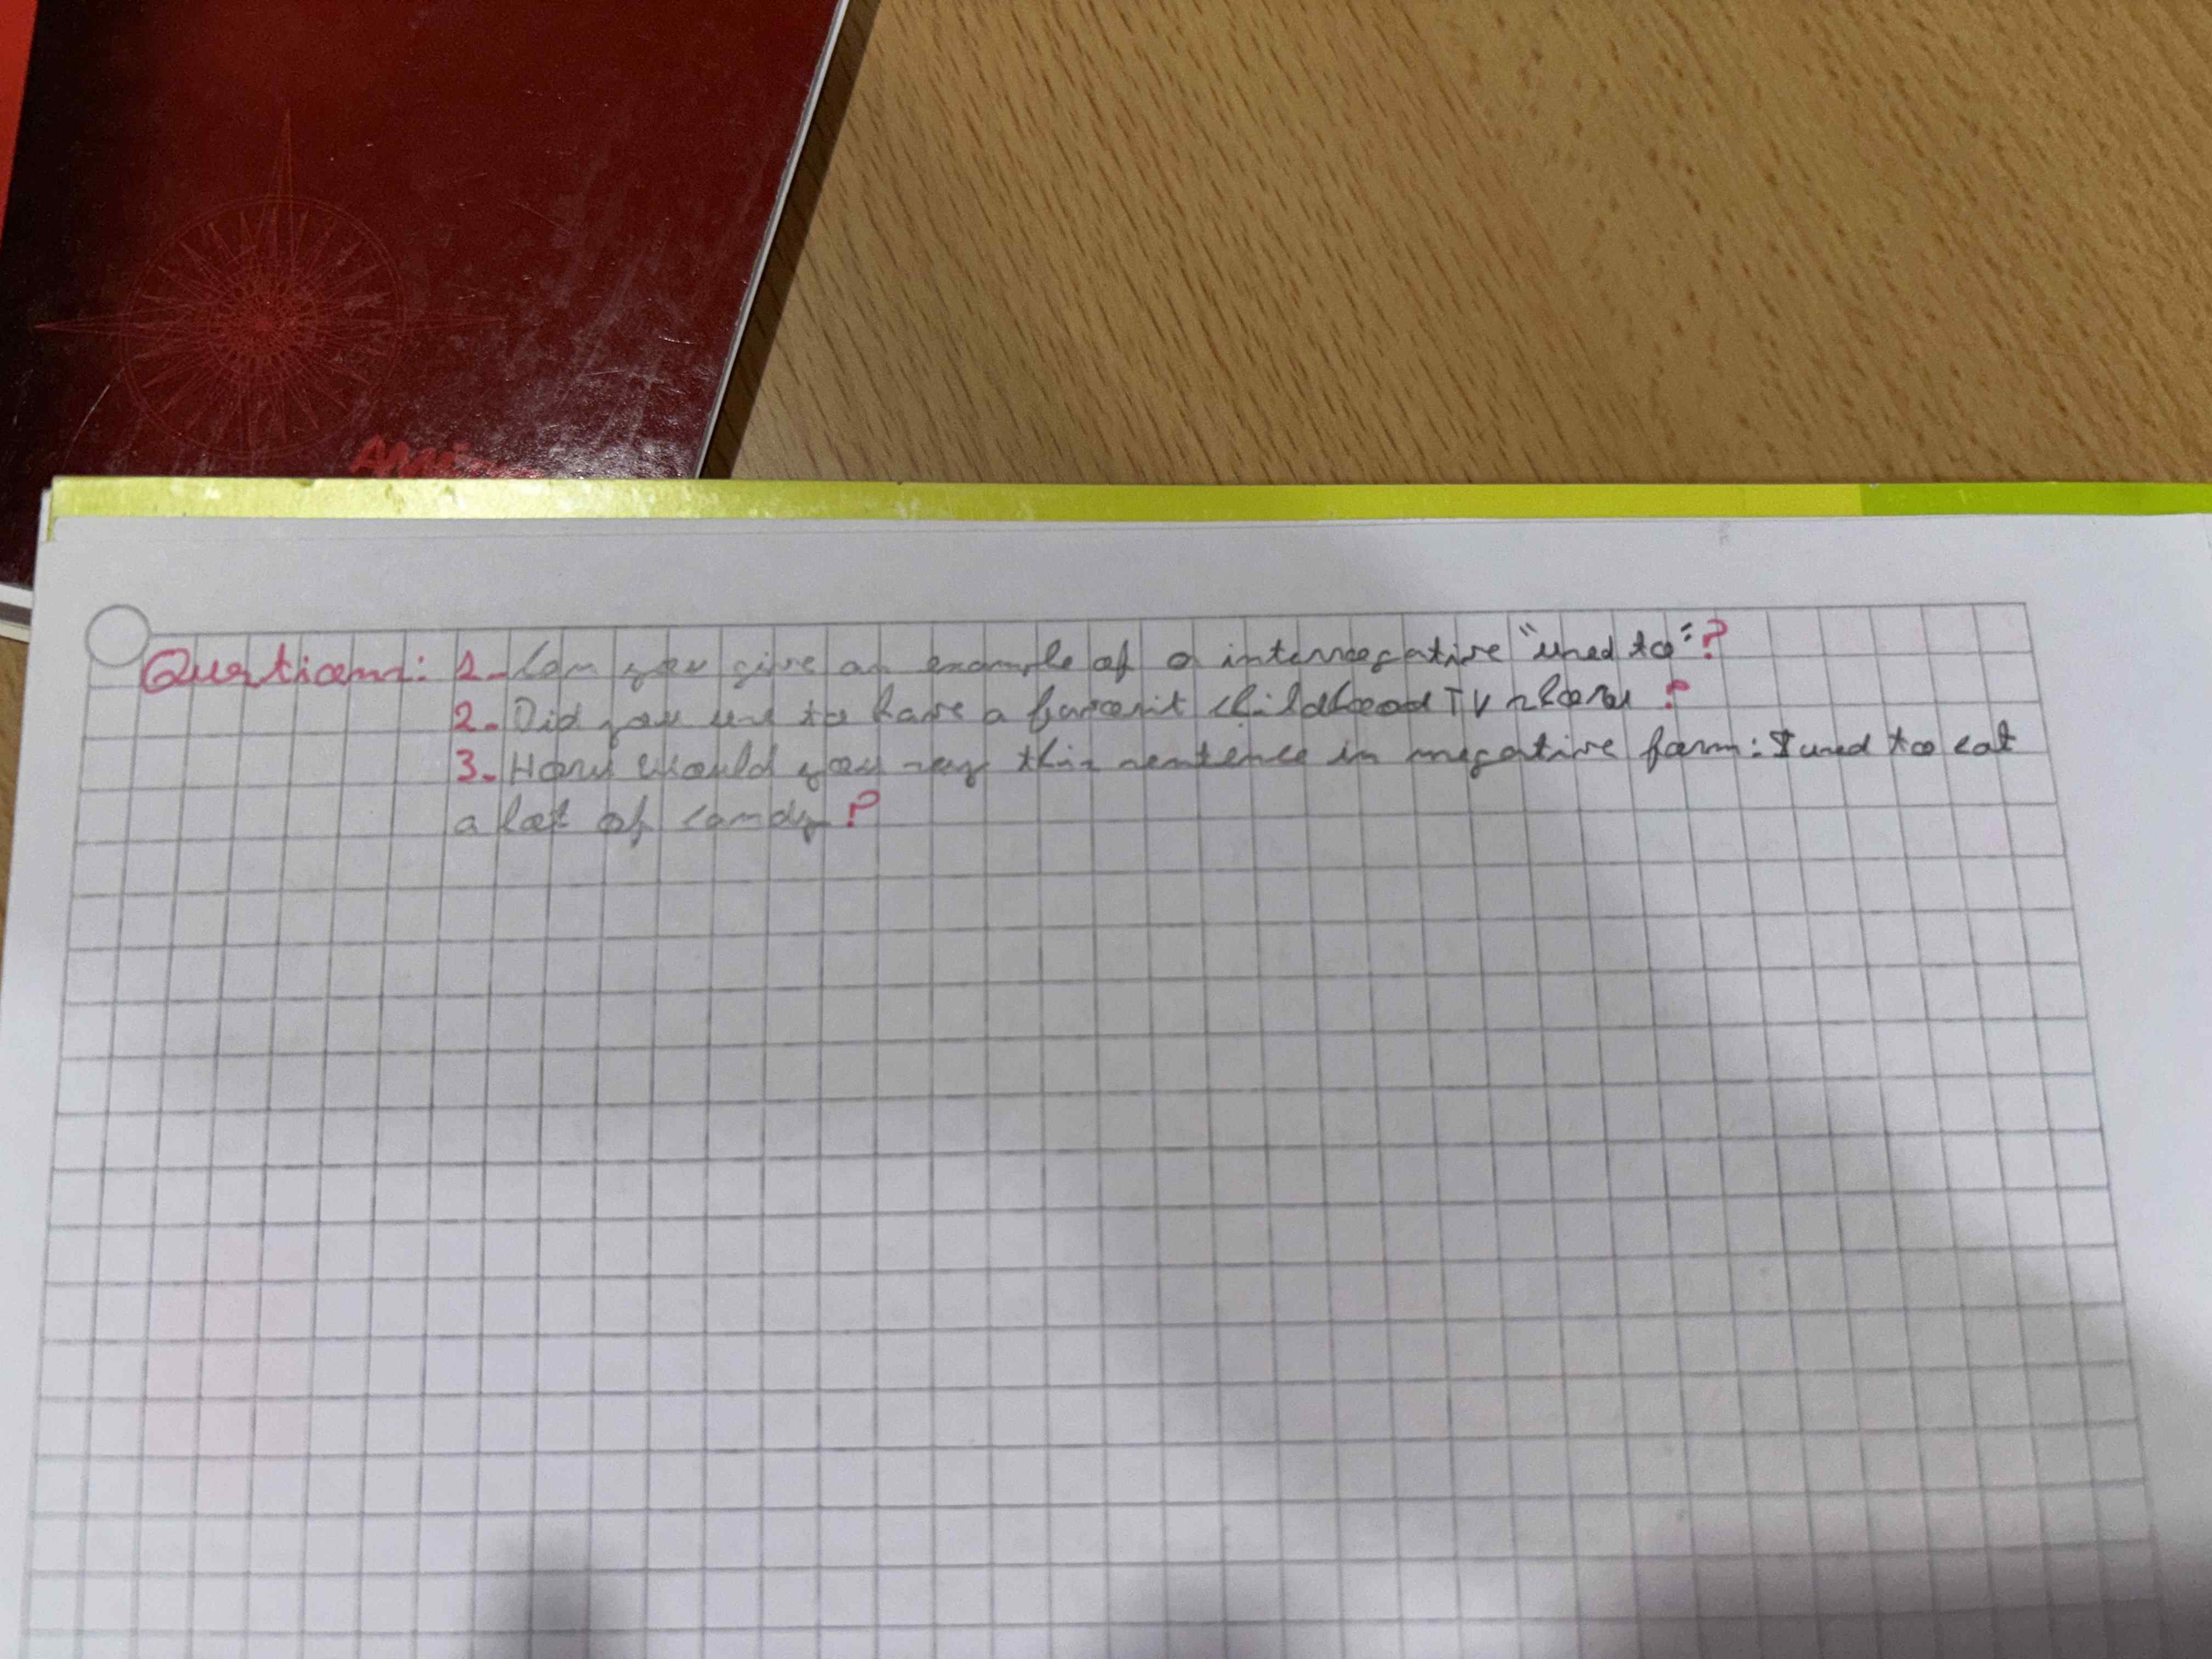 Questions: 1. Can you give an example of a interrogative "used to"?
2. Did you use to have a favorit childhood TV show ?
3. How would you say this sentence in negative form: I used to eat
a lot of candy ?